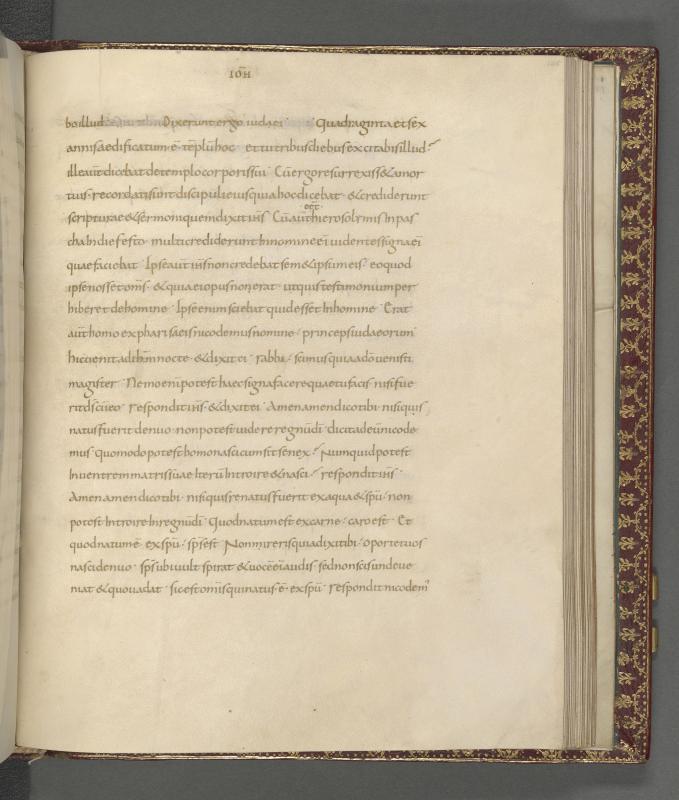 IOH̄
bo illud Dixerunt ergo iudaei Quadraginta et sex
annis aedificatum ē templū hoc et tu tribus diebus excitabis illud
ille aūt dicebat de templo corporis sui Cū ergo resurrexiss& a mor
tuis recordati sunt discipuli eius quia hoc dicebat & crediderunt
scripturae & sermoni quem dixit ih̄s Cū aūt eet hierosolimis in pas
cha in die festo multi crediderunt in nomine ei uidentes signa ei
quae faciebat Ipse aūt ih̄s non credebat sem& ipsum eis eo quod
ipse nosset om̄s & quia ei opus non erat ut quis testimonium per
hiberet de homine Ipse enim sciebat quid esset in homine Erat
aūt homo ex pharisaeis nicodemus nomine princeps iudaeorum
hic uenit ad ih̄m nocte & dixit ei rabbi scimus quia a dō uenisti
magister Nemo enī potest haec signa facere quae tu facis nisi fue
rit ds̄ cū eo respondit ih̄s & dixit ei Amen amen dico tibi nisi quis
natus fuerit denuo non potest uidere regnū dī dicit ad eū nicode
mus quomodo potest homo nasci cum sit senex Numquid potest
in uentrem matris suae iterū introire & nasci respondit ih̄s
Amen amen dico tibi nisi quis renatus fuerit ex aqua & spū non
potest introire in regnū dī Quod natum est ex carne caro est Et
quod natum ē ex spū sps̄ est Non mireris quia dixi tibi oportet uos
nasci denuo sps̄ ubi uult spirat & uocē eī audis sed non scis unde ue
niat & quo uadat sic est omīs qui natus ē ex spū respondit nicodem'